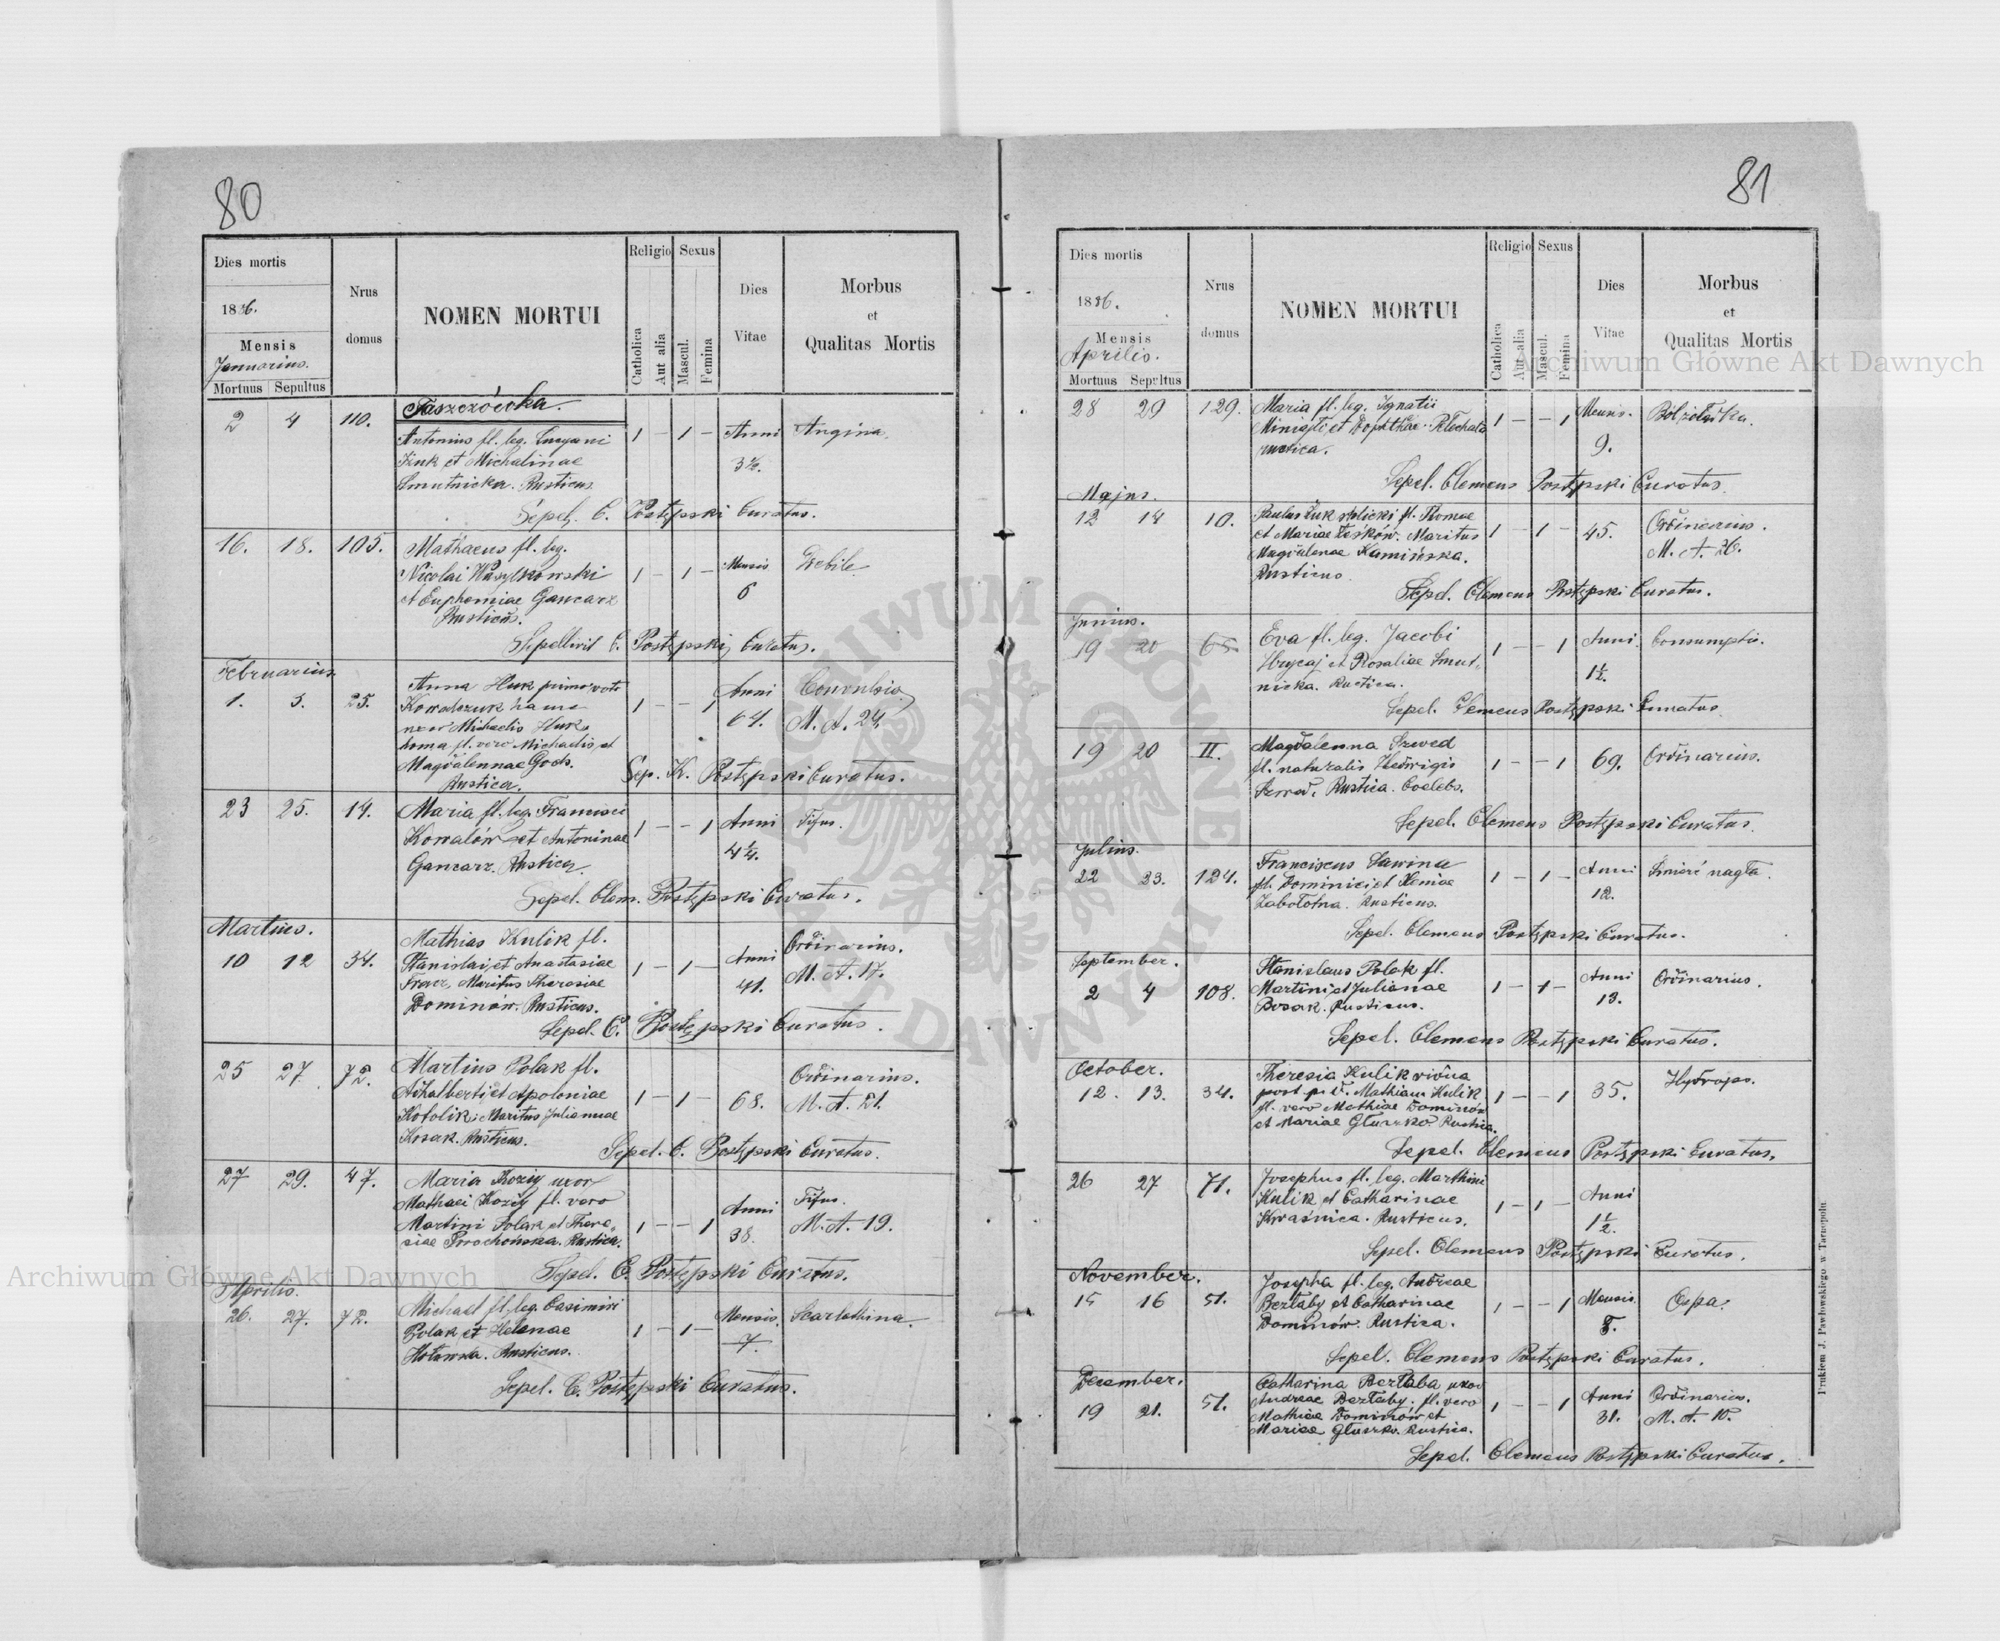 80
Dies mortis
1886.
Mensis
Januarius.
Mortuus Sepultus
Nrus
domus
NOMEN MORTUI
Religio
Catholica
Aut alia
Sexus
Mascul.
Femina
Dies
Vitae
Morbus
et
Qualitas Mortis
Taszczówka.
2 4 110. Antonius fl. leg. 1 – 1 – Anni 3½. Angina.
Fink et Michalinae
Smutnicka. Rusticus
Sepel. C. Postępski Curatus.
16. 18. 105. Mathaeus fl. leg. 1 – 1 – Mensis 6 Debile
Nicolai Wasylkowski
et Euphemiae Gancarz
Rusticus.
Sepelivit C. Postępski Curatus.
Februarius
1. 3. 25. Anna Huk primo voto 1 – – 1 Anni 64. Convulsio
Kowalczuk M. A. 24.
Michaelis Huk
fl. vero Michaelis et
Magdalennae Goch.
Rustica.
Sep. K. Postępski Curatus.
23 25. 14. Maria fl. leg. Francisci 1 – – 1 Anni 4¼. Tifus.
Kowalów et Antoninae
Gancarz. Rustica.
Sepel. Clem. Postępski Curatus.
Martius.
10 12 34. Mathias Kulik fl. 1 – 1 – Anni 41. Ordinarius.
Stanislai et Anastasiae M. A. 17.
Maritus Theresiae
Dominów. Rusticus.
Sepel. C. Postępski Curatus.
25 27 72. Martius Polak fl. 1 – 1 – 68. Ordinarius.
Adhalberti et Apoloniae M. A. 21.
Kotolik. Maritus Juliannae
Rusticus.
Sepel. C. Postępski Curatus.
27 29. 47. Maria Koziy uxor 1 – – 1 Anni 38. Tifus.
Mathaei Koziy fl. vero M. A. 19.
Martini Polak et There„
siae Rustica.
Sepel. C. Postępski Curatus.
Aprilis.
26. 27. 72. Michael fl. leg. Casimiri 1 – 1 – Mensis. 7. Scarlathina.
Polak et Helenae
Hołowska. Rusticus.
Sepel. C. Postępski Curatus.
81
Dies mortis
1886.
Mensis
Aprilis.
Mortuus Sepultus
Nrus
domus
NOMEN MORTUI
Religio
Catholica
Aut alia
Sexus
Mascul.
Femina
Dies
Vitae
Morbus
et
Qualitas Mortis
28 29 129. Maria fl. leg. Ignatii 1 – – 1 Mensis. 9.
rustica.
Sepel. Clemens Postępski Curatus.
Majus.
12 14 10. Paulus fl. Thomae 1 – 1 – 45. Ordinarius.
et Mariae Leśków. Maritus M. A. 26.
Magdalenae Kamińska.
Rusticus.
Sepel. Clemens Postępski Curatus.
Junius.
19 20 65. Eva fl. leg. Jacobi 1 – – 1 Anni 1½. Consumptio.
Hrycaj et Rosaliae Smut„
nicka. Rustica.
Sepel. Clemens Postępski Curatus.
19 20 II. Magdalenna Szwed 1 – – 1 69. Ordinarius.
fl. naturalis Hedwigis
Szwed. Rustica. Coelebs.
Sepel. Clemens Postępski Curatus.
Julius.
22 23. 124. Franciscus Sawina 1 – 1 – Anni 12. Śmierć nagła.
fl. Dominici et Xeniae
Zabołotna. Rusticus.
Sepel. Clemens Postępski Curatus.
September.
2 4 108. Stanislaus Polak fl. 1 – 1 – Anni 13. Ordinarius.
Martini et Julianae
Bosak. Rusticus.
Sepel. Clemens Postępski Curatus.
October.
12. 13. 34. Theresia Kulik vidua 1 – – 1 35. Hydrops.
post p. d. Mathiam Kulik
fl. vero Mathiae Dominów
et Mariae Głuszko Rustica.
Sepel. Clemens Postępski Curatus.
26 27 71. Josephus fl. leg. Marthini 1 – 1 – Anni 1½.
Kulik et Catharinae
Kwaśnica. Rusticus.
Sepel. Clemens Postępski Curatus.
November.
15 16 51. Josepha fl. leg. Andreae 1 – – 1 Mensis Ospa.
Bezłaby et Catharinae
Dominów. Rustica.
Sepel. Clemens Postępski Curatus.
December.
19 21. 51. Catharina Bezłaba uxor 1 – – 1 Anni 31. Ordinarius.
Andreae Bezłaby. fl. vero M. A. 10.
Mathiae Dominów et
Mariae Głuszko. Rustica.
Sepel. Clemens Postępski Curatus.
Drukiem J. Pawłowskiego w Tarnopolu
Archiwum Główne Akt Dawnych
Archiwum Główne Akt Dawnych
ARCHIWUM GŁÓWNE AKT DAWNYCH